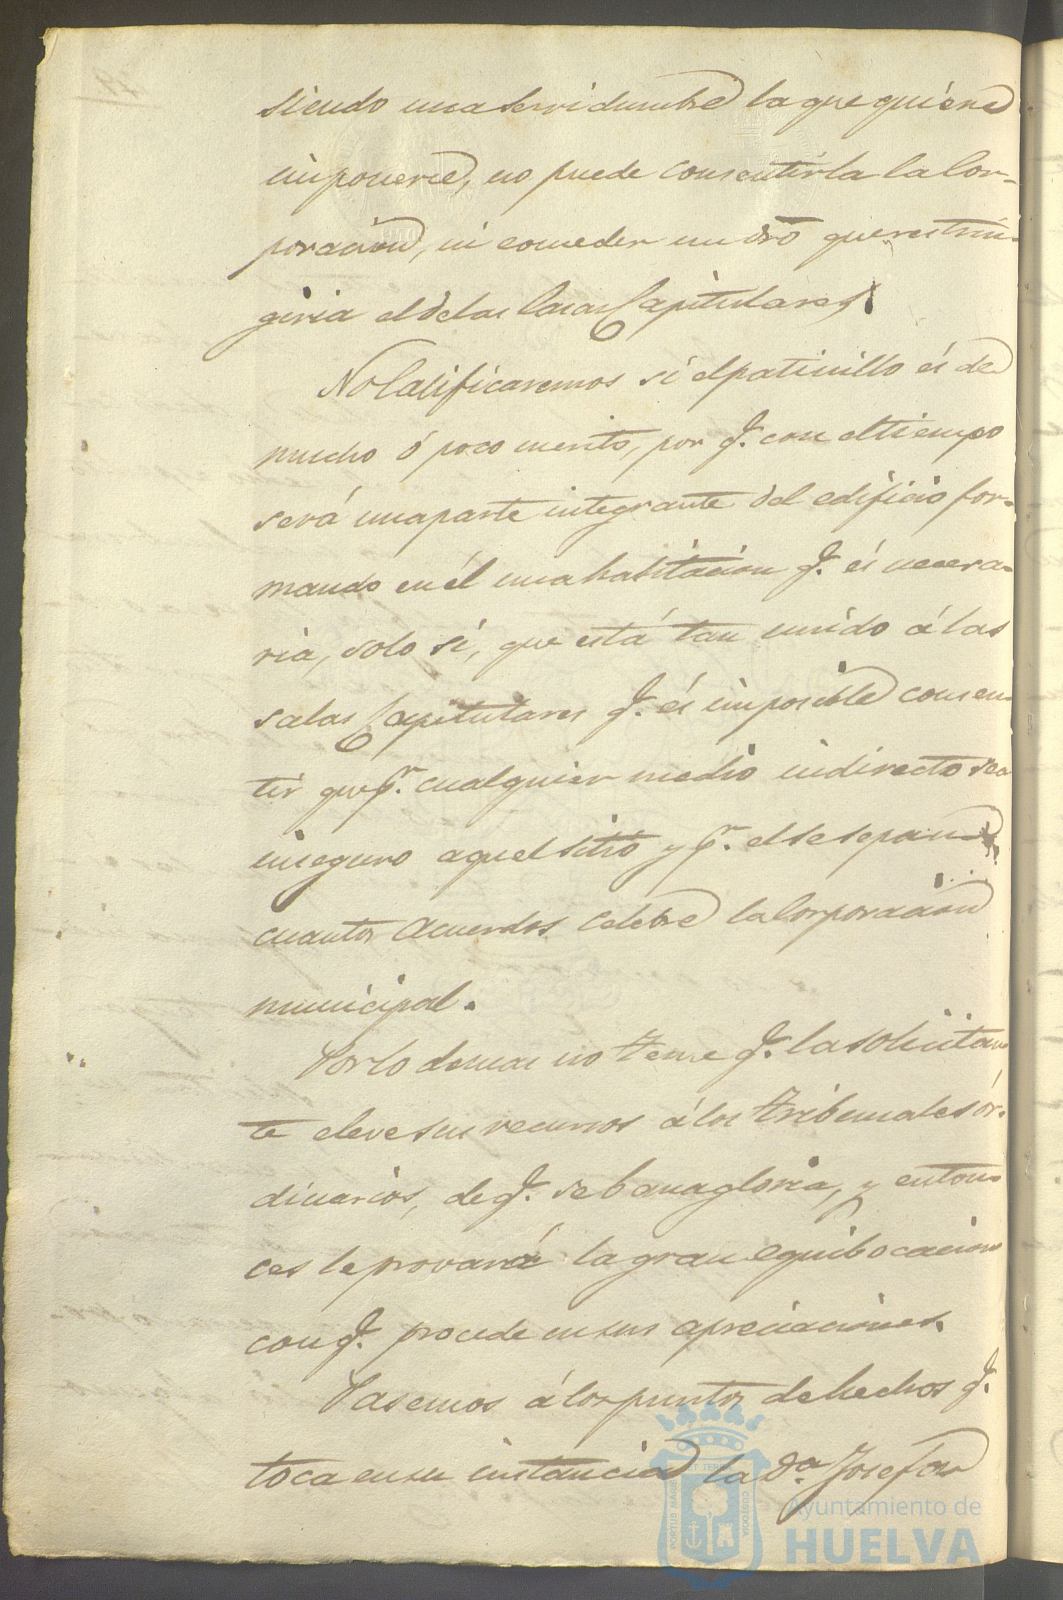 siendo una servidumbre la que quiere
imponerse, no puede consentirla la Cor-
poración, ni conceder un dro que restrin-
giria el de las Casas Capitulares.
No Calificaremos si el patinillo és de
mucho ó poco merito, por q. con el tiempo
será una parte integrante del edificio for-
mando en él una habitación q. és necesa-
ria, solo sí, que está tan unido á las
salas Capitulares q. és imposible consen-
tir que pr. cualquier medio indirecto sea
inseguro aquel sitio y pr. el se sepan
cuantos Acuerdos Celebre la Corporación
municipal.
Por lo demas no teme q. la solicitan
te eleve sus recursos á los tribunales ór-
dinarios, de q. se banagloria, y enton-
ces le provará la gran equibocacion
con q. procede en sus apreciaciones.
Pasemos á los puntos de hechos q.
toca en su instancia la Da. Josefa
PORTUS MARIS ET TERRAE CUSTODIA
Ayuntamiento de
HUELVA